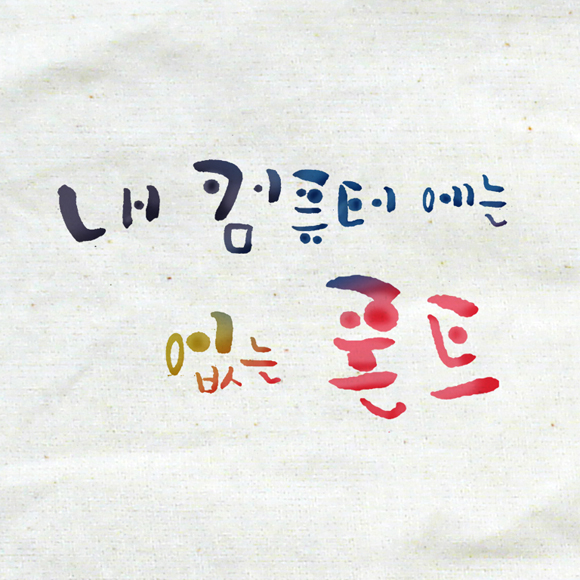 내 컴퓨터에는
없는 폰트